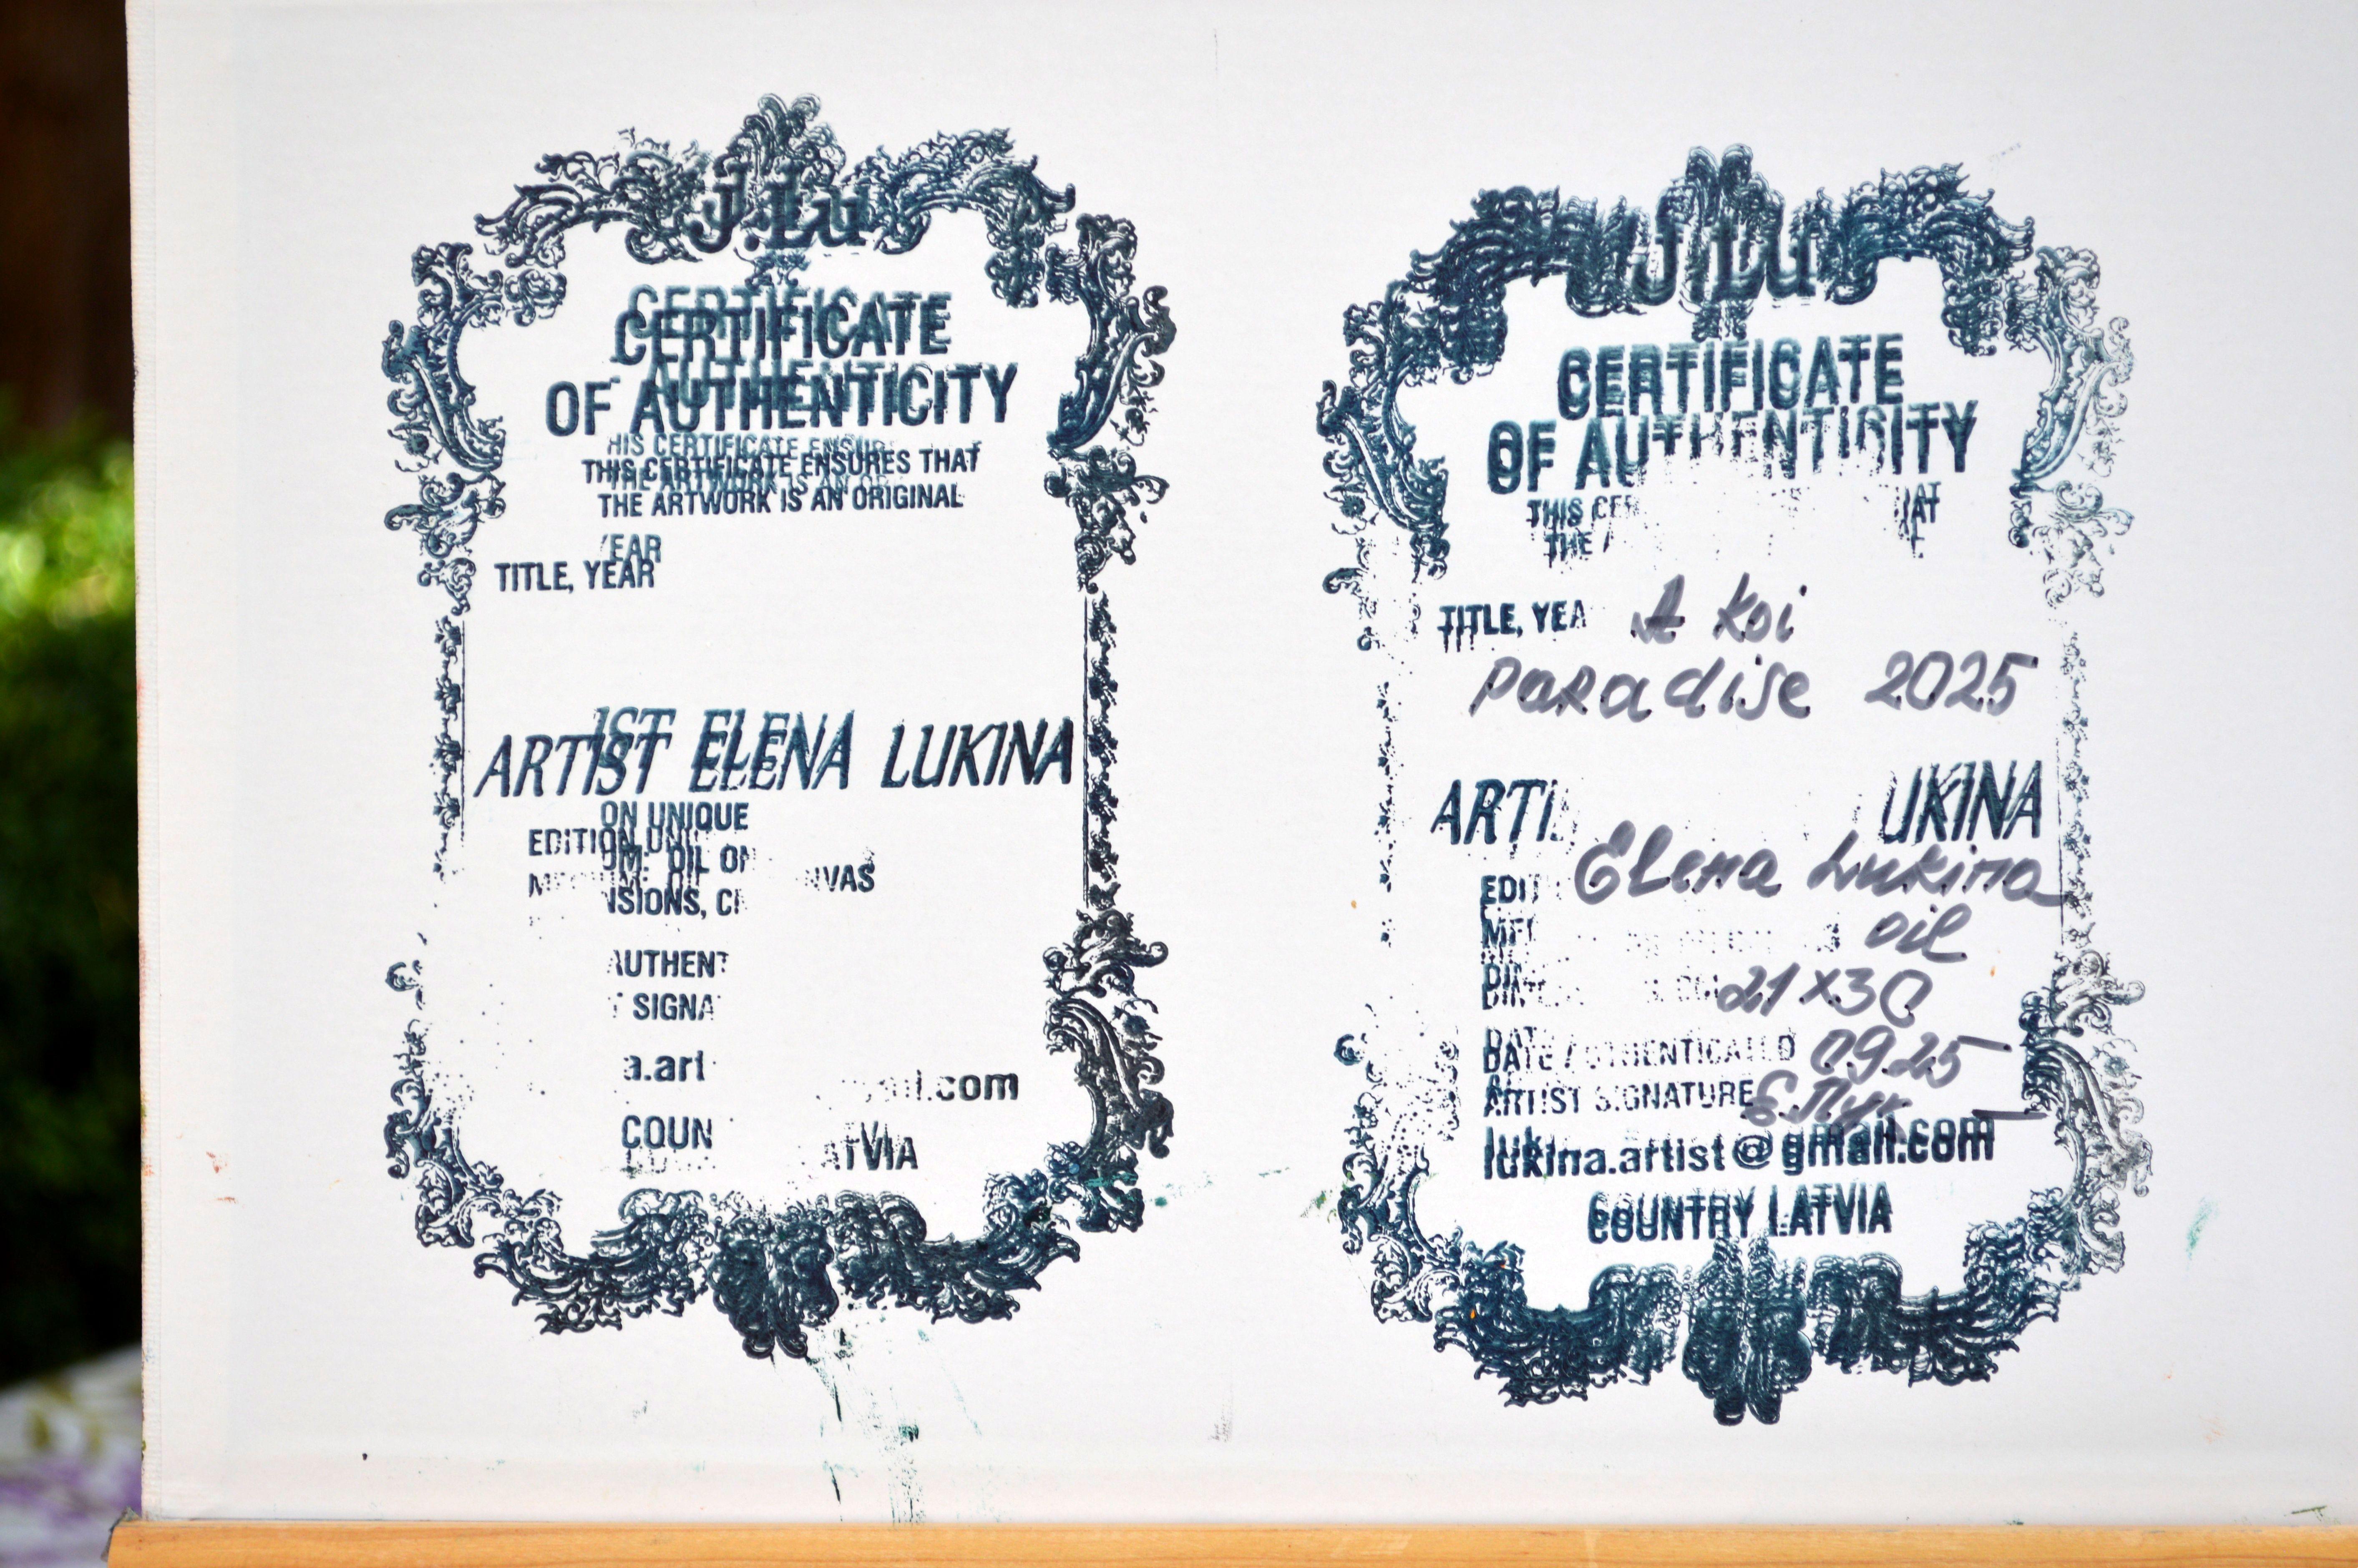 J.Lu
CERTIFICATE
OF AUTHENTICITY
THIS CERTIFICATE ENSURES THAT
THE ARTWORK IS AN ORIGINAL
TITLE, YEAR
ARTIST ELENA LUKINA
EDITION UNIQUE
OIL
a.art
.com
COUN ATVIA
J.Lu
CERTIFICATE
OF AUTHENTICITY
THIS CER AT
THE
TITLE, YEA A Koi
Paradise 2025
ARTI UKINA
Elena Lukina
EDI
oil
21x30
DATE AUTHENTICATED 09.25
ARTIST SIGNATURE
lukina.artist@gmail.com
COUNTRY LATVIA